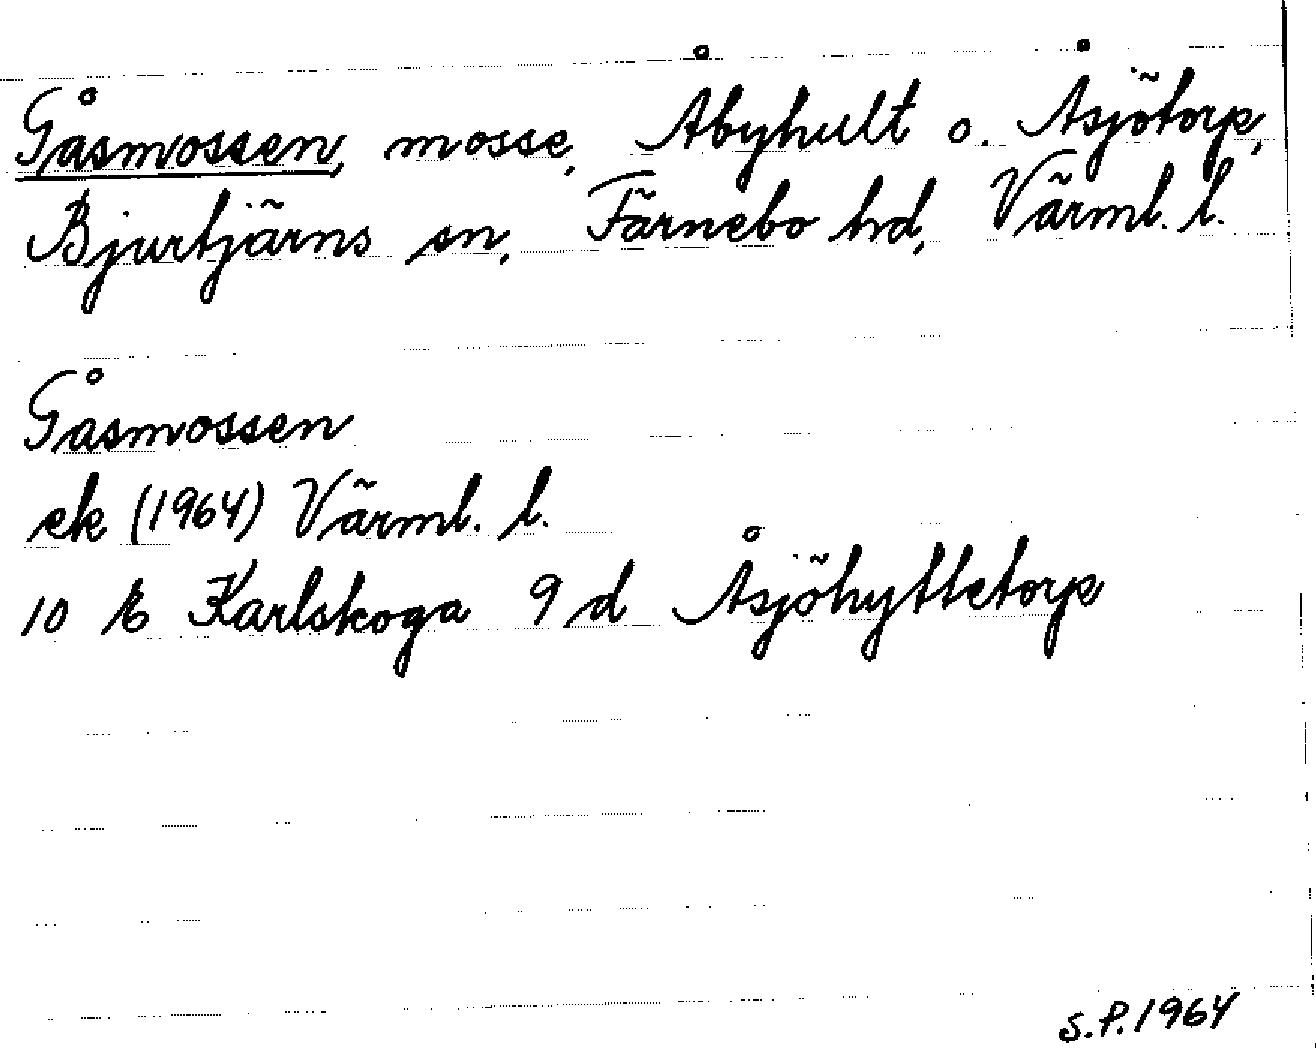 Gåsmossen, mosse, Åbyhult o. Åsjötorp,
Bjurtjärns sn, Färnebo hd, Värml. l.
Gåsmossen
ek (1964) Värml. l.
10 E Karlskoga 9 d Åsjöhyttetorp
S.P. 1964